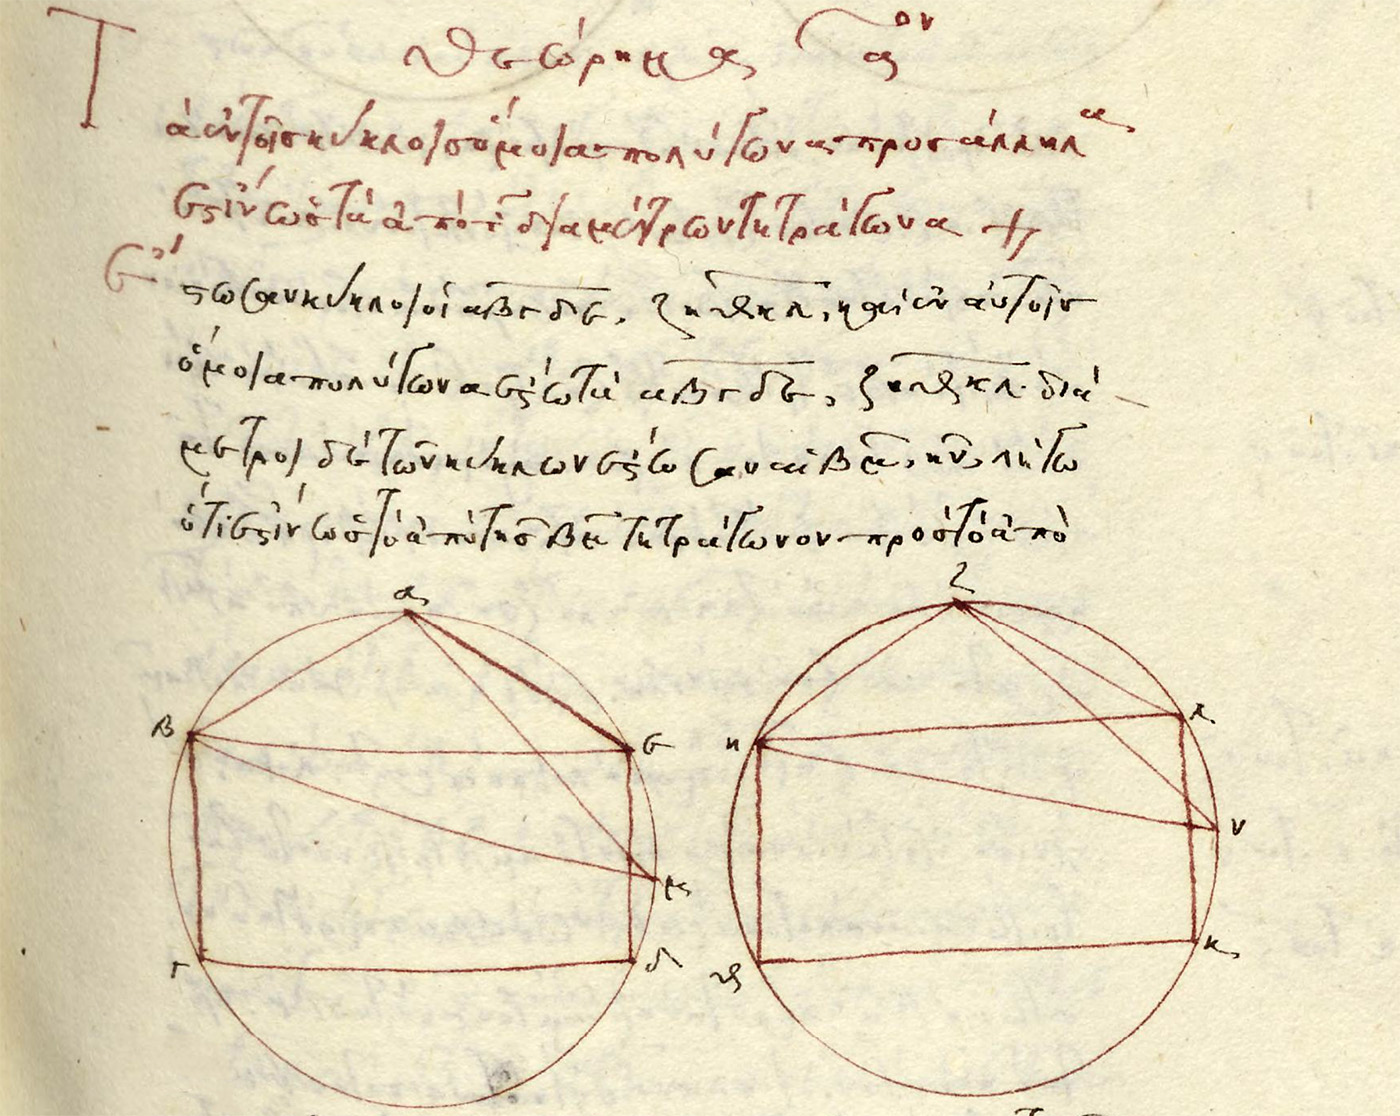 θεώρημα αον
Τὰ ἐν τοῖς κύκλοις ὅμοια πολύγωνα πρὸς ἄλληλα
ἐστιν ὡς τὰ ἀπὸ τῶν διαμέτρων τετράγωνα
Ἔστωσαν κύκλοι οἱ αβγδε, ζηθκλ, καὶ ἐν αὐτοῖς
ὅμοια πολύγωνα ἔστω τὰ αβγδε, ζηθκλ. διά
μετροι δὲ τῶν κύκλων ἔστωσαν αἱ βμ, ην, λέγω
ὅτι ἐστὶν ὡς τὸ ἀπὸ τῆς βμ τετράγωνον πρὸς τὸ ἀπὸ
α ζ
β ε η λ
μ ν
γ δ θ κ